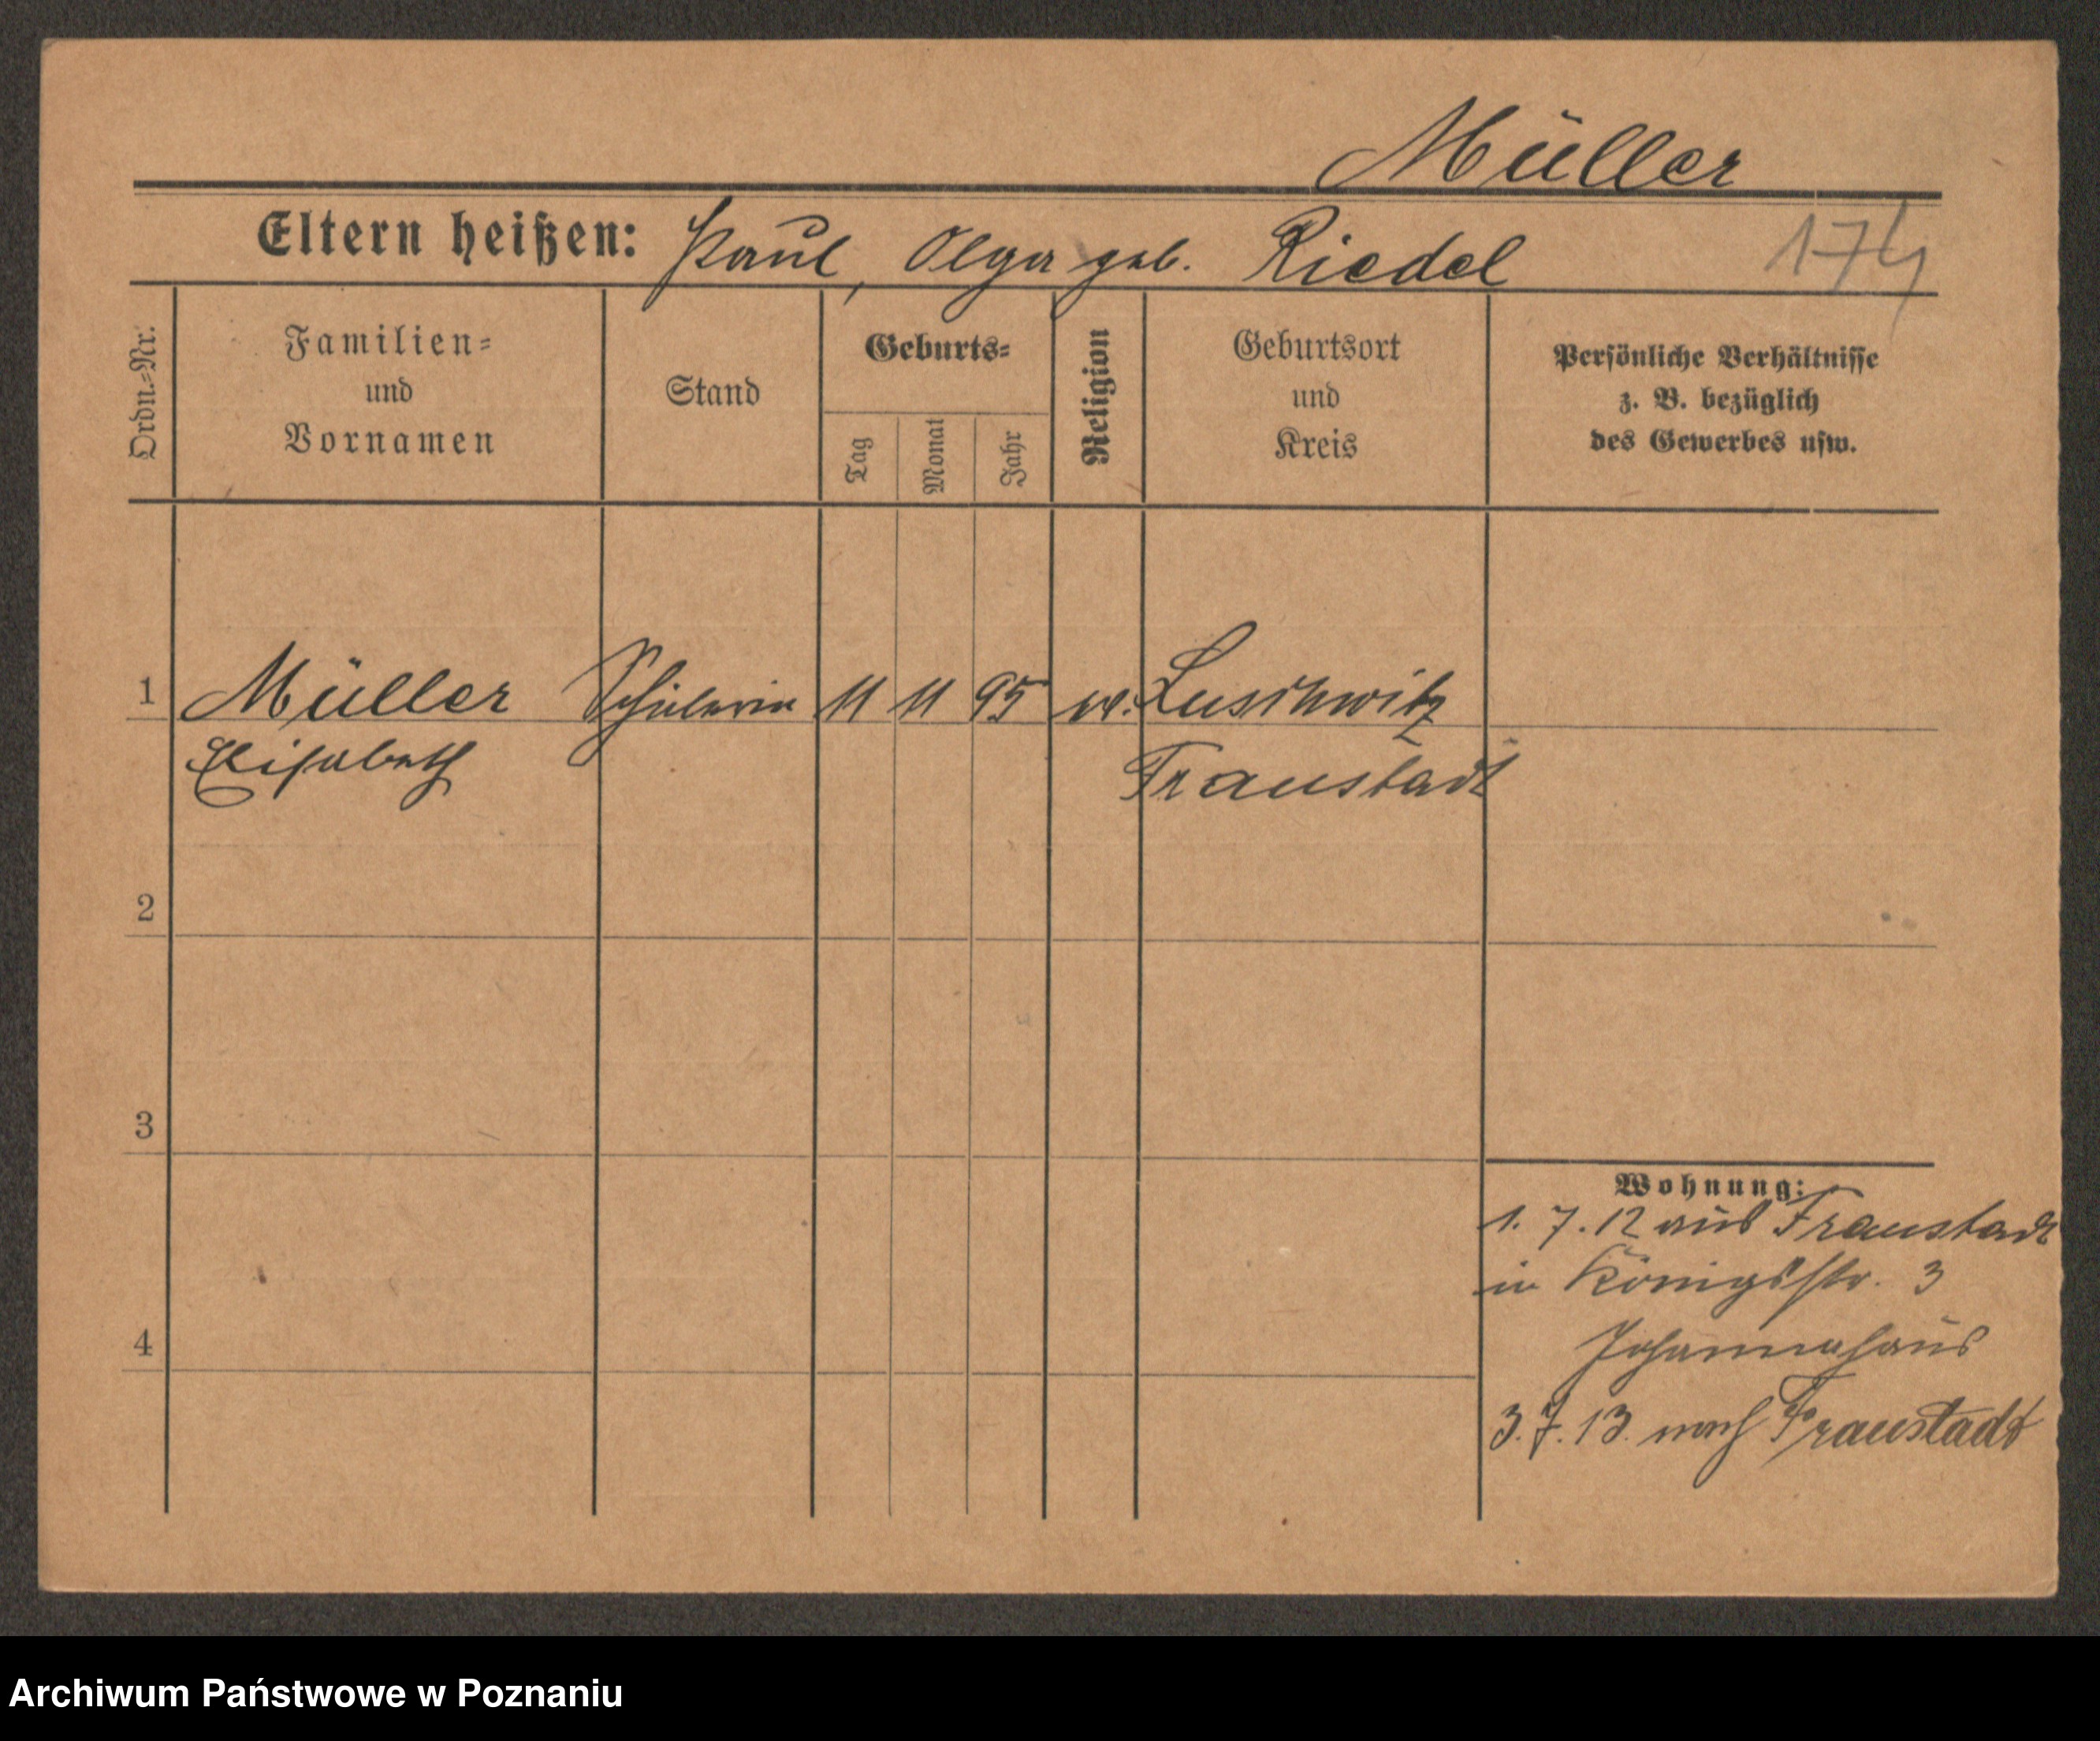 Müller
Eltern heißen: Paul, Olga geb. Riedel
174
Ordn.=Nr.
Familien=
und
Vornamen
Stand
Geburts=
Tag
Monat
Jahr
Religion
Geburtsort
und
Kreis
Persönliche Verhältnisse
z. B. bezüglich
des Gewerbes usw.
1 Müller Schülerin 11 11 95 ev. Luschwitz
Elisabeth Fraustadt
2
3
4
Wohnung:
1. 7. 12 aus Fraustadt
in Königsstr. 3
Johannahaus
3. 7. 13. nach Fraustadt
Archiwum Państwowe w Poznaniu